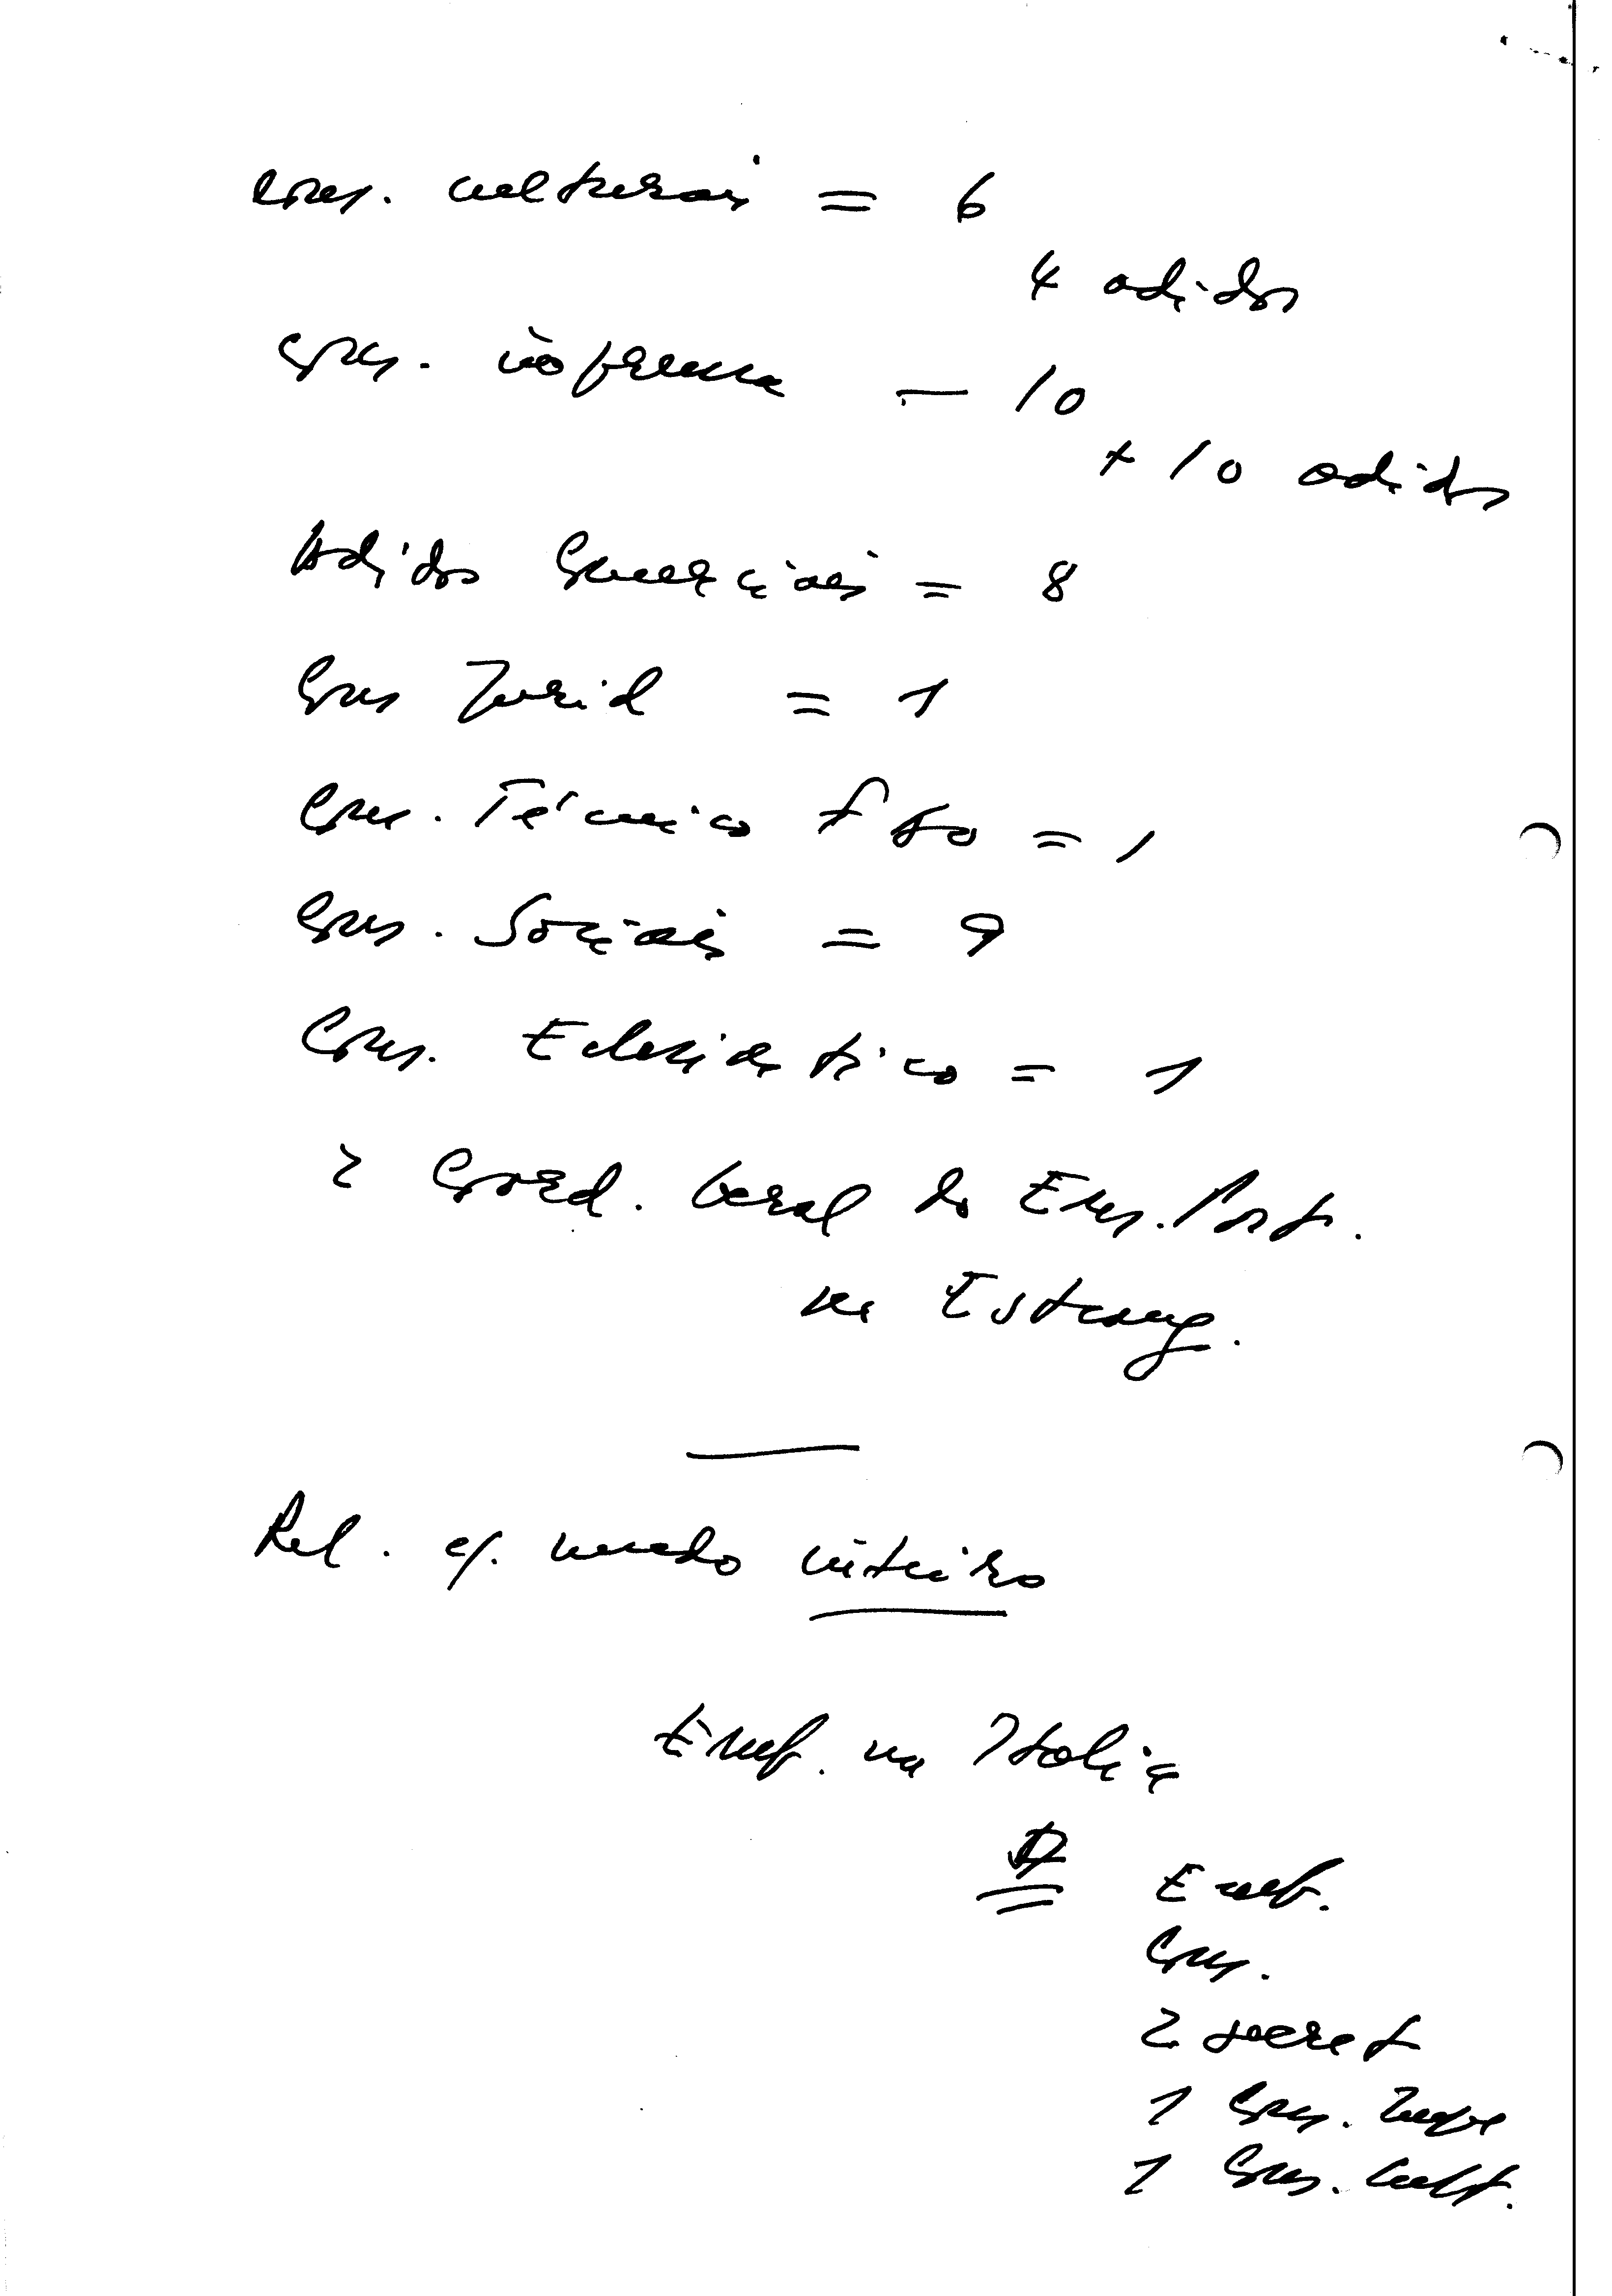 Cons. culturais = 6
4 adidos
Cons. imprensa — 10
+ 10 adidos
Adidos Comerciais = 8
Cons Juríd = 1
Cons. Técnico = 1
Cons. Sociais = 9
Cons. Eclesiástico = 1
2 Coord. Geral do Ens. Port.
no Estrang.
Rel. c/. mundo inteiro
Emb. na Itália
Emb.
Cons.
2 secret
1 Cons. Impr
1 Cons. Cult.